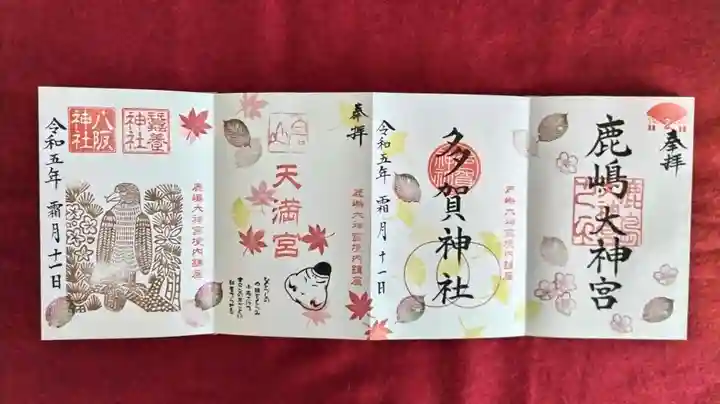 奉拝
鹿嶋大神宮
鹿嶋大神宮境内鎮座
多賀神社
令和五年 霜月 十一日
奉拝
鹿嶋大神宮境内鎮座
天満宮
鹿嶋大神宮境内鎮座
蠶養神社
八阪神社
令和五年 霜月 十一日